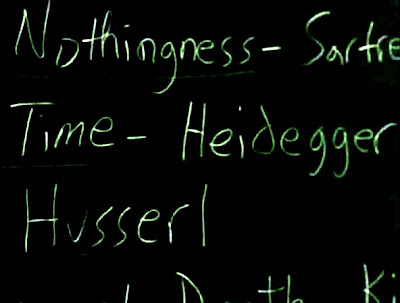 Nothingness - Sartre
Time - Heidegger
Husserl
Death Ki